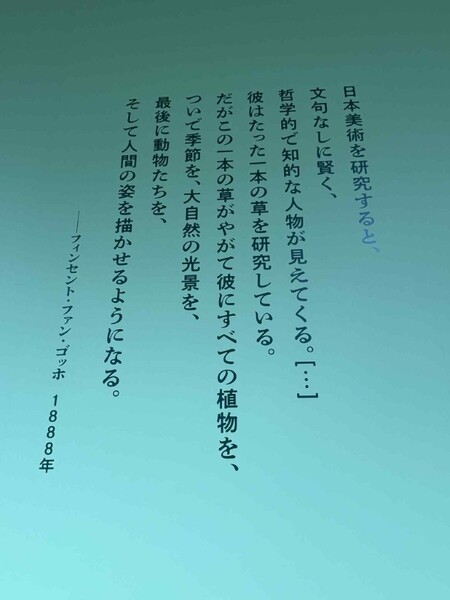 日本美術を研究すると、
文句なしに賢く、
哲学的で知的な人物が見えてくる。[…]
彼はたった一本の草を研究している。
だがこの一本の草がやがて彼にすべての植物を、
ついで季節を、大自然の光景を、
最後に動物たちを、
そして人間の姿を描かせるようになる。
——フィンセント・ファン・ゴッホ 1888年